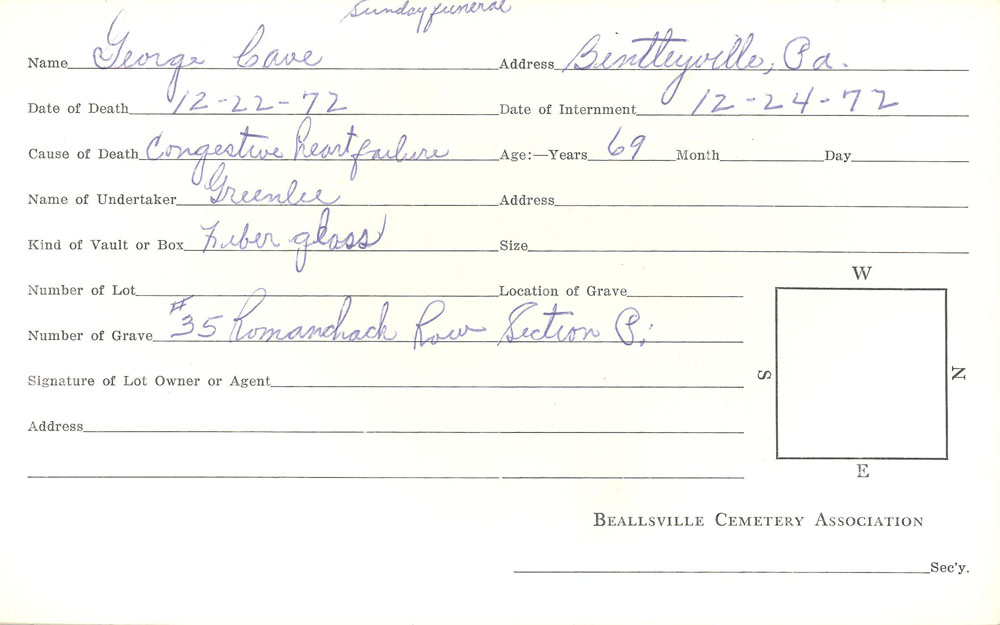 Sunday funeral
Name George Cave Address Bentleyville, Pa.
Date of Death 12-22-72 Date of Internment 12-24-72
Cause of Death Congestive heart failure Age:—Years 69 Month Day
Name of Undertaker Greenlee Address
Kind of Vault or Box Fiber glass Size
W
Number of Lot Location of Grave
Number of Grave #35 Romanchack Row Section P.
Signature of Lot Owner or Agent
S N
Address
E
BEALLSVILLE CEMETERY ASSOCIATION
Sec'y.